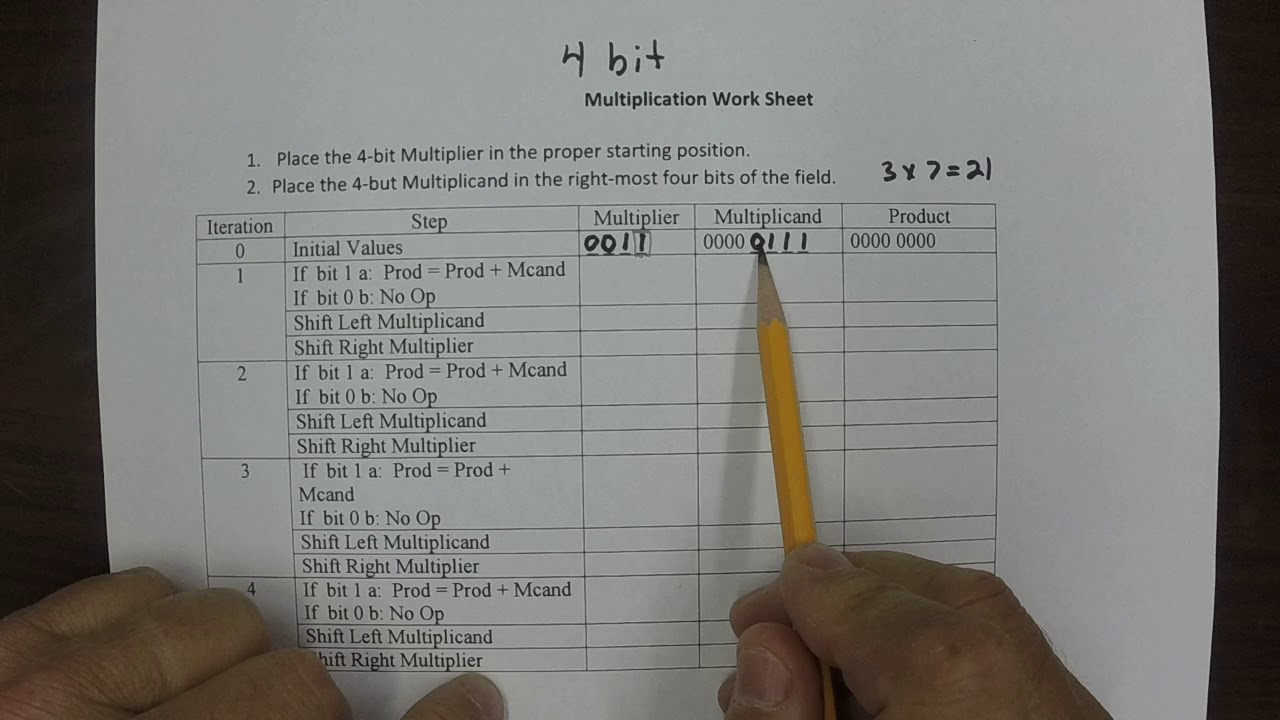 4 bit
Multiplication Work Sheet
1. Place the 4-bit Multiplier in the proper starting position.
2. Place the 4-but Multiplicand in the right-most four bits of the field.
3 x 7 = 21
Iteration Step Multiplier Multiplicand Product
0 Initial Values 0011 0000 0111 0000 0000
1 If bit 1 a: Prod = Prod + Mcand
If bit 0 b: No Op
Shift Left Multiplicand
Shift Right Multiplier
2 If bit 1 a: Prod = Prod + Mcand
If bit 0 b: No Op
Shift Left Multiplicand
Shift Right Multiplier
3 If bit 1 a: Prod = Prod +
Mcand
If bit 0 b: No Op
Shift Left Multiplicand
Shift Right Multiplier
4 If bit 1 a: Prod = Prod + Mcand
If bit 0 b: No Op
Shift Left Multiplicand
Shift Right Multiplier